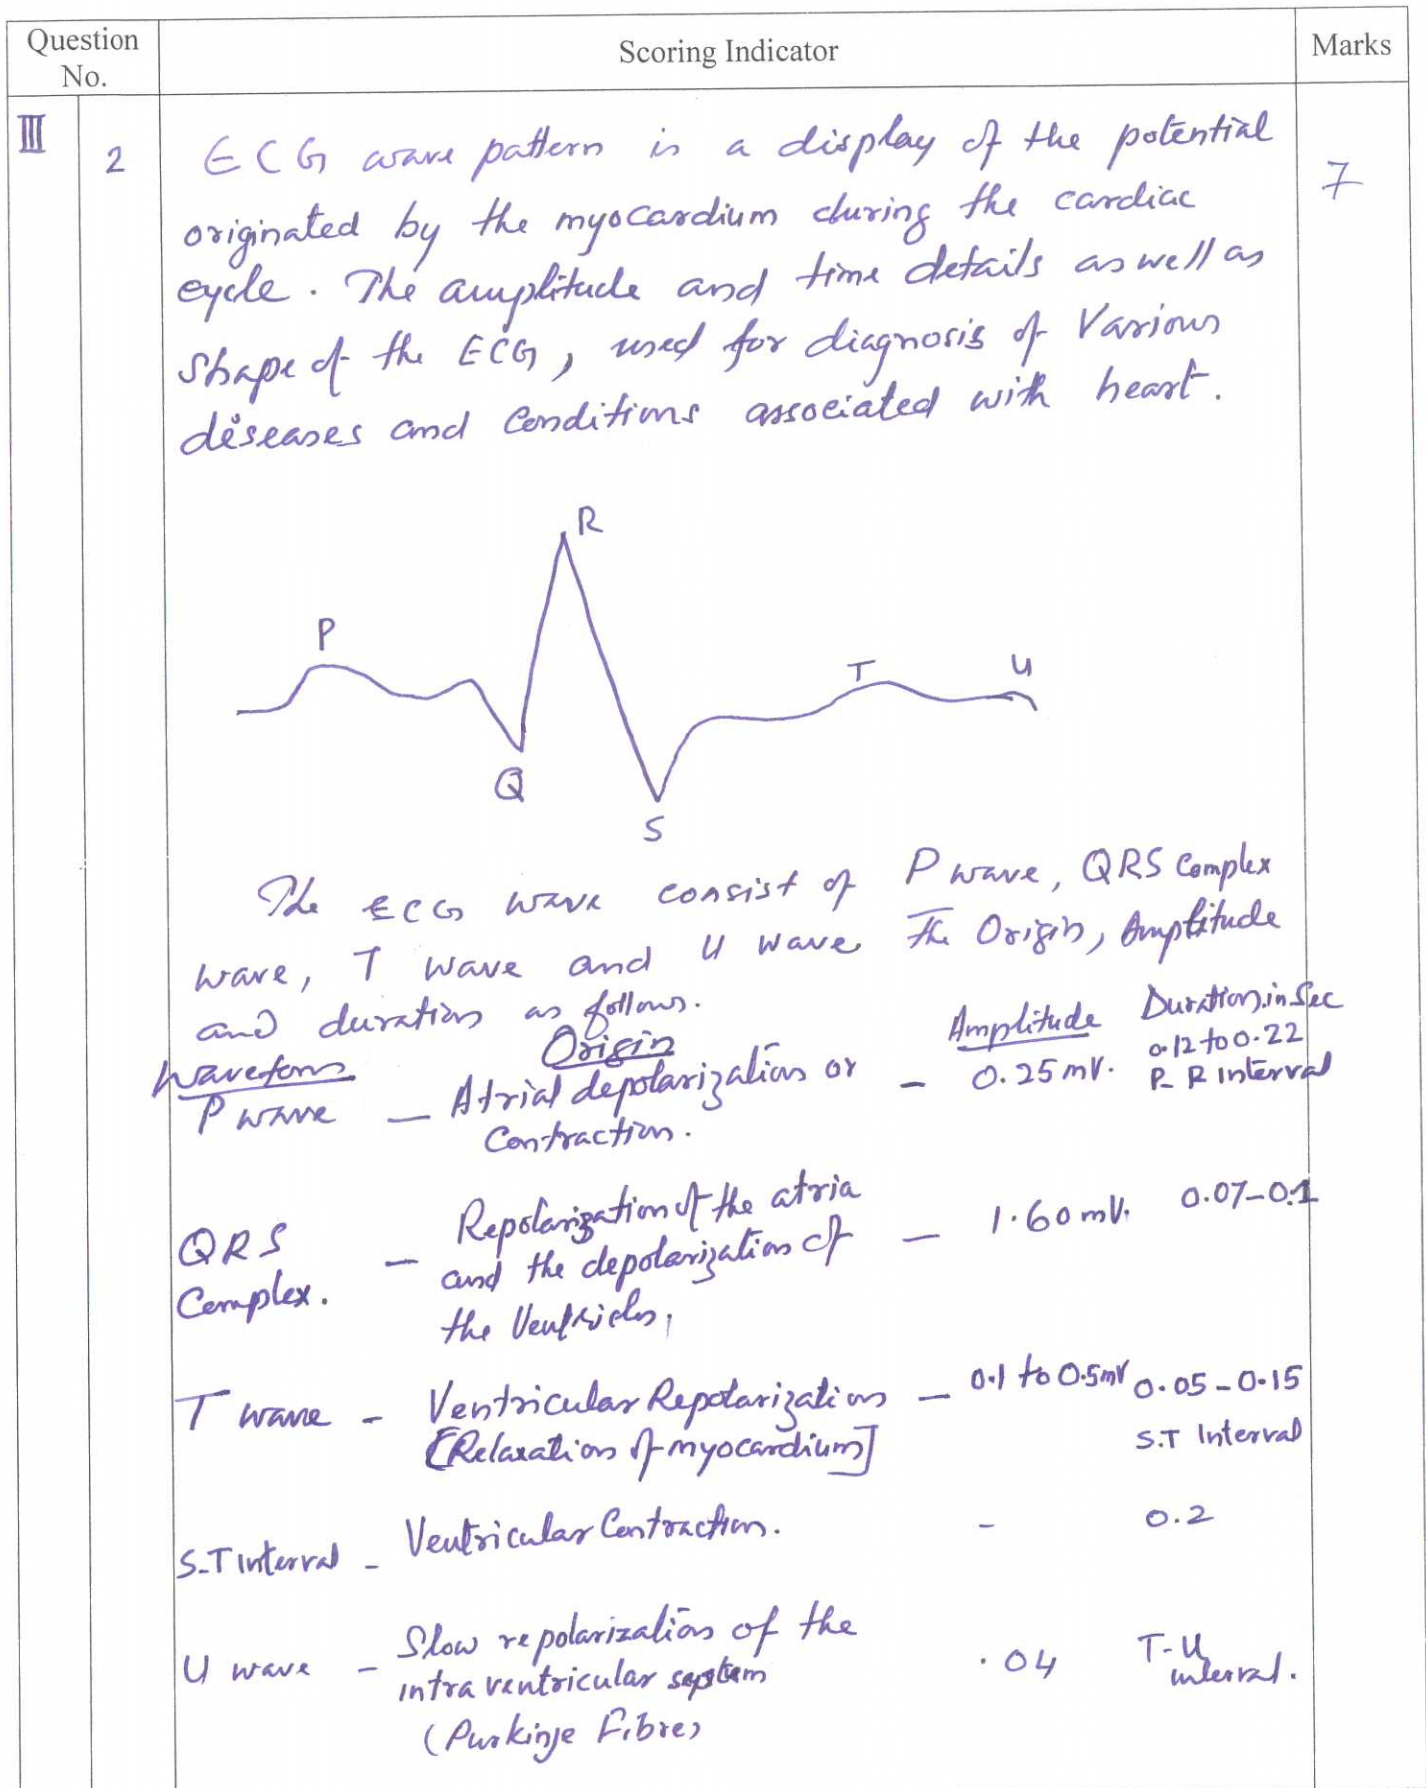 Question No.
Scoring Indicator
Marks
III 2 ECG wave pattern is a display of the potential 7
originated by the myocardium during the cardiac
cycle. The amplitude and time details as well as
shape of the ECG, used for diagnosis of Various
diseases and Conditions associated with heart.
R
P
T
U
Q
S
The ECG wave consist of P wave, QRS Complex
wave, T wave and U wave. The Origin, Amplitude
and duration as follows.
Waveform Origin Amplitude Duration in Sec
P wave — Atrial depolarization or — 0.25 mV. 0.12 to 0.22
Contraction. P-R Interval
QRS — Repolarization of the atria — 1.60 mV. 0.07-0.1
Complex. and the depolarization of
the Ventricles.
T wave - Ventricular Repolarization — 0.1 to 0.5mV 0.05-0.15
[Relaxation of myocardium] S.T Interval
S-T interval - Ventricular Contraction. - 0.2
U wave - Slow repolarization of the .04 T-U
intra ventricular system interval.
(Purkinje Fibres